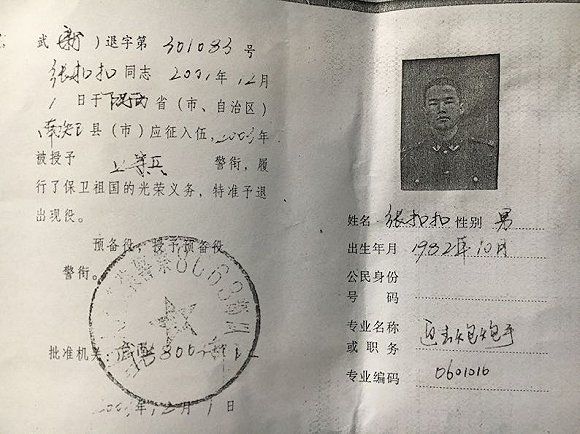 武（新）退字第 301083 号
张扣扣 同志 2001年12月
1日于陕西省（市、自治区）
南郑县（市）应征入伍，2003年
被授予 上等兵 警衔，履
行了保卫祖国的光荣义务，特准予退
出现役。
预备役，授予预备役
警衔。
批准机关：
2003年12月1日
姓名 张扣扣 性别 男
出生年月 1982年10月
公民身份
号码
专业名称 迫击炮炮手
或职务
专业编码 0601010